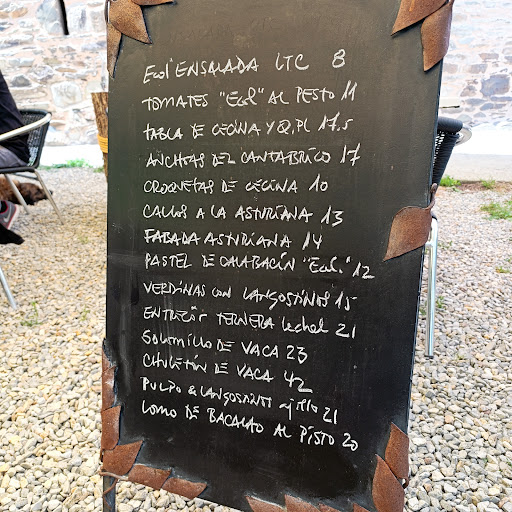 Ecol ENSALADA LTC 8
TOMATES "Ecol" AL PESTO 11
TABLA DE CECINA Y Q.PL 17.5
ANCHOAS DEL CANTABRICO 17
CROQUETAS DE CECINA 10
CALLOS A LA ASTURIANA 13
FABADA ASTURIANA 14
PASTEL DE CALABACÍN "Ecol." 12
VERDINAS CON LANGOSTINOS 15
ENTRECOT TERNERA lechal 21
SOLOMILLO DE VACA 23
CHULETÓN DE VACA 42
PULPO & LANGOSTINOS ajillo 21
LOMO DE BACALAO AL PISTO 20